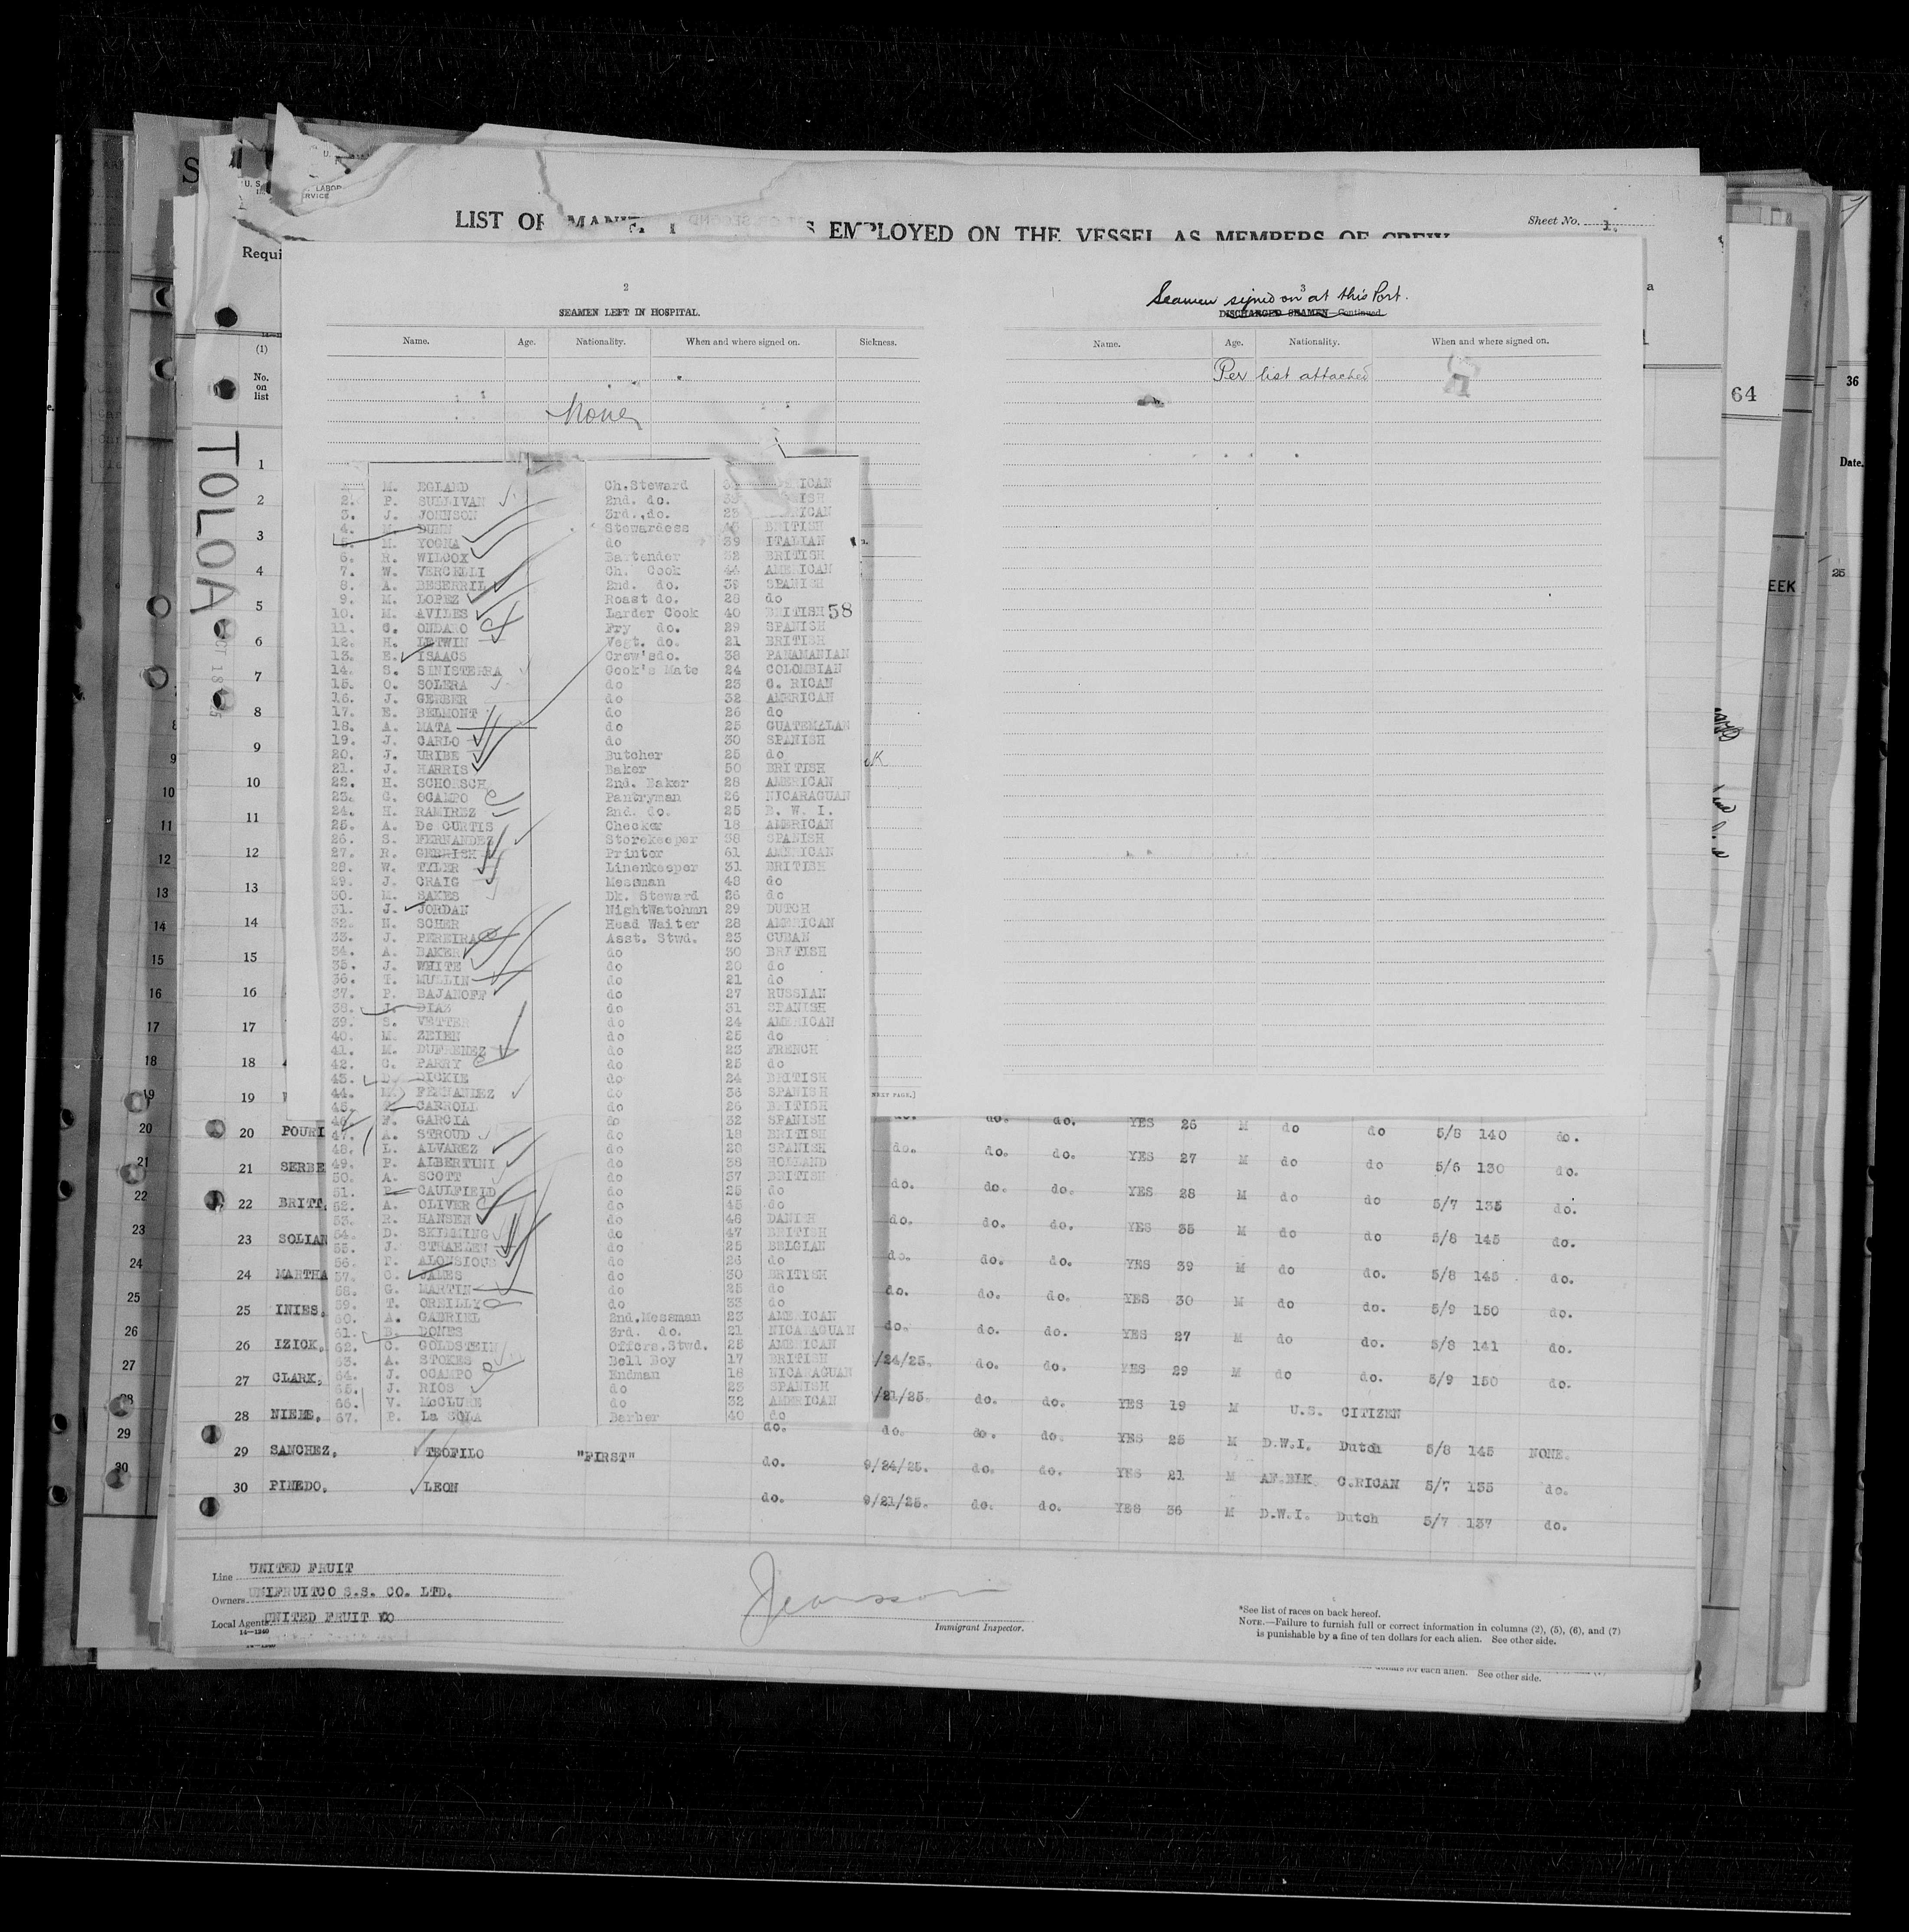 LIST OF EMPLOYED ON THE VESSEL AS MEMBERS OF CREW
Sheet No. 1.
Requi
2
SEAMEN LEFT IN HOSPITAL.
Name. Age. Nationality. When and where signed on. Sickness.
None
3
Seamen signed on at this Port.
DISCHARGED SEAMEN—Continued.
Name. Age. Nationality. When and where signed on.
Per list attached
(1)
No. on list
TOLOA
64
36
Date.
EEK
25
58
M. EGLAND Ch.Steward
2. P. SULLIVAN 2nd. do.
3. J. JOHNSON 3rd. do. 23
4. DUNN Stewardess BRITISH
5. M. YOGNA do 39 ITALIAN
6. R. WILCOX Bartender 32 BRITISH
7. W. VERCELLI Ch. Cook 44 AMERICAN
8. A. BESERRIL 2nd. do. 39 SPANISH
9. M. LOPEZ Roast do. 28 do
10. M. AVILES Larder Cook 40 BRITISH
11. C. ONDARO Fry do. 29 SPANISH
12. H. LETWIN Vegt. do. 21 BRITISH
13. E. ISAACS Crew'sdo. 38 PANAMANIAN
14. S. SINISTERRA Cook's Mate 24 COLOMBIAN
15. O. SOLERA do 23 C. RICAN
16. J. GERBER do 32 AMERICAN
17. E. BELMONT do 26 do
18. A. MATA do 25 GUATEMALAN
19. J. CARLO do 30 SPANISH
20. J. URIBE Butcher 25 do
21. J. HARRIS Baker 50 BRITISH
22. H. SCHORSCH 2nd. Baker 28 AMERICAN
23. G. OCAMPO Pantryman 26 NICARAGUAN
24. H. RAMIREZ 2nd. do. 25 B. W. I.
25. A. De CURTIS Checker 18 AMERICAN
26. S. FERNANDEZ Storekeeper 38 SPANISH
27. R. GERRISH Printer 61 AMERICAN
28. W. TYLER Linenkeeper 31 BRITISH
29. J. CRAIG Messman 48 do
30. M. SAKES Dk. Steward 26 do
31. J. JORDAN NightWatchmn 29 DUTCH
32. H. SCHER Head Waiter 28 AMERICAN
33. J. PEREIRA Asst. Stwd. 23 CUBAN
34. A. BAKER do 30 BRITISH
35. J. WHITE do 20 do
36. T. MULLIN do 21 do
37. P. BAJANOFF do 27 RUSSIAN
38. J. DIAZ do 31 SPANISH
39. S. VETTER do 24 AMERICAN
40. M. ZEIEN do 25 do
41. M. DUFRENEZ do 23 FRENCH
42. C. PARRY do 25 do
43. D. DICKIE do 24 BRITISH
44. M. FERNANDEZ do 36 SPANISH
45. CARROLL do 26 BRITISH
46. F. GARCIA do 32 SPANISH
47. A. STROUD do 18 BRITISH
48. L. ALVAREZ do 20 SPANISH
49. P. ALBERTINI do 38 HOLLAND
50. A. SCOTT do 37 BRITISH
51. CAULFIELD do 25 do
52. A. OLIVER do 45 do
53. R. HANSEN do 46 DANISH
54. D. SKIMMING do 47 BRITISH
55. J. STRAELEN do 25 BELGIAN
56. ALONSIOUS do 26 do
57. C. JAMES do 30 BRITISH
58. G. MARTIN do 25 do
59. T. OREILLY do 33 do
60. A. GABRIEL 2nd.Messman 23 AMERICAN
61. B. 3rd. do. 21 NICARAGUAN
62. C. GOLDSTEIN Offcrs.Stwd. 25 AMERICAN
63. A. STOKES Bell Boy 17 BRITISH
64. J. OCAMPO Endman 18 NICARAGUAN
65. J. RIOS do 23 SPANISH
66. V. McCLURE do 32 AMERICAN
67. P. La SOLA Barber 40 do
20 POURI do. do. do. YES 26 M do do 5/8 140 do.
21 SERBE do. do. do. YES 27 M do do 5/6 130 do.
22 BRITT. do. do. do. YES 28 M do do 5/7 135 do.
23 SOLIAN do. do. do. YES 35 M do do 5/8 145 do.
24 MARTHA do. do. do. YES 39 M do do. 5/8 145 do.
25 INIES, do. do. do. YES 30 M do do. 5/9 150 do.
26 IZICK, do. do. do. YES 27 M do do. 5/8 141 do.
27 CLARK, /24/25. do. do. YES 29 M do do. 5/9 150 do.
28 /21/25. do. do. YES 19 M U.S. CITIZEN
29 SANCHEZ, TEOFILO "FIRST" do. do. do. do. YES 25 M D.W.I. Dutch 5/8 145 NONE.
30 PINEDO, LEON do. 9/24/25. do. do. YES 21 M AF.BLK C.RICAN 5/7 135 do.
do. 9/21/25. do. do. YES 36 M D.W.I. Dutch 5/7 137 do.
Line UNITED FRUIT
Owners UNIFRUITCO S.S. CO. LTD.
Local Agents UNITED FRUIT CO
14—1240
Immigrant Inspector.
*See list of races on back hereof.
NOTE.—Failure to furnish full or correct information in columns (2), (5), (6), and (7)
is punishable by a fine of ten dollars for each alien. See other side.
for each alien. See other side.